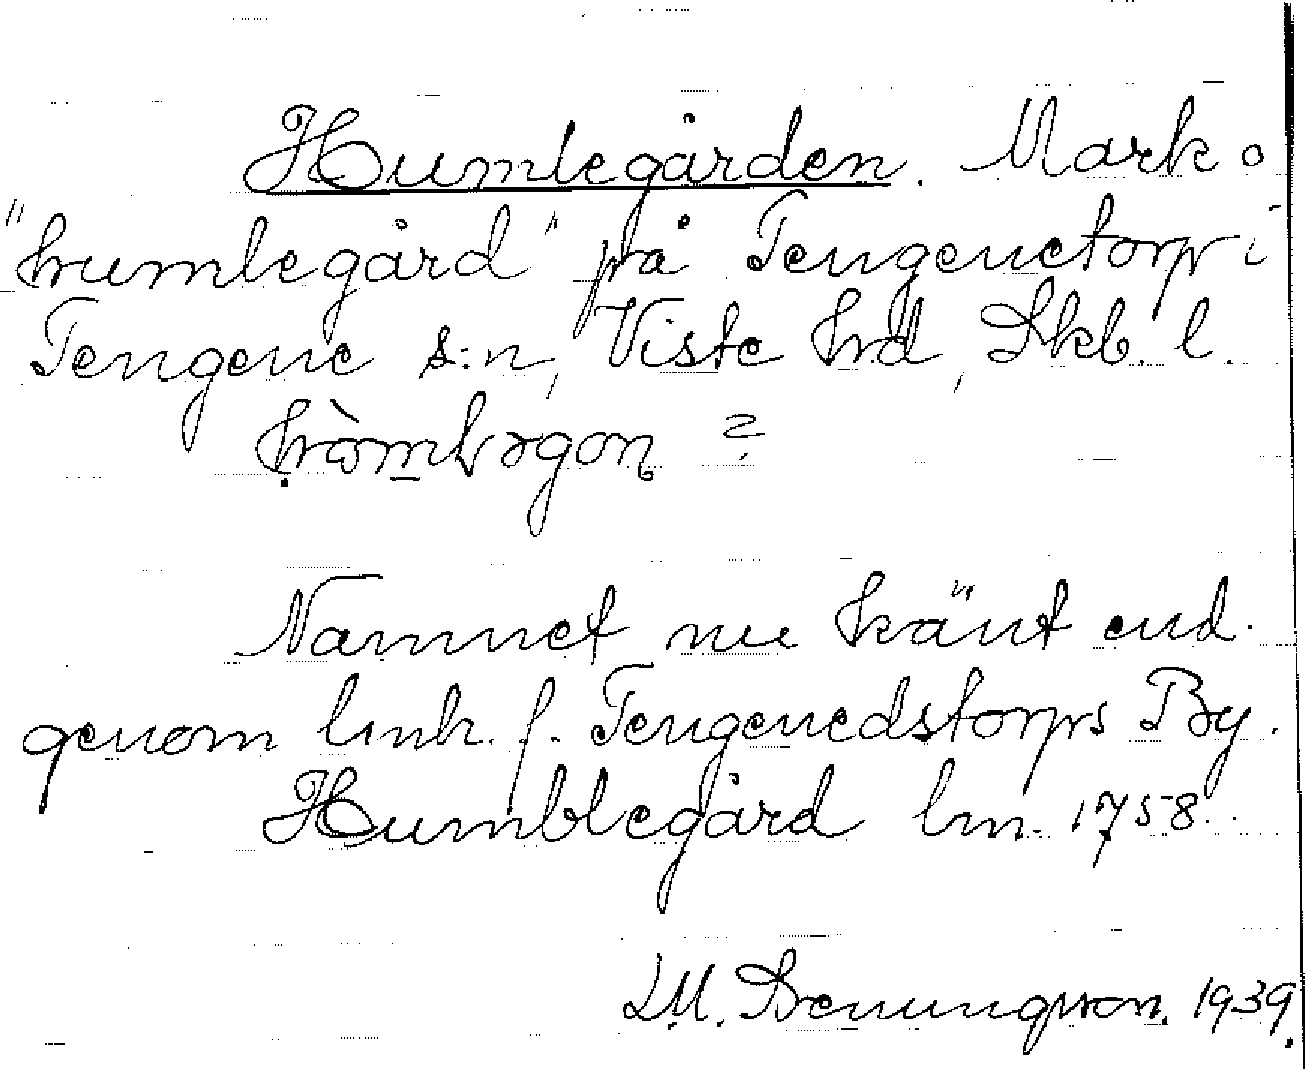 Humlegården. Mark o
"humlegård" på Tengenetorp i
Tengene s:n, Viste hrd, Skb. l.
Namnet nu känt end.
genom lmh. f. Tengenedstorps By.
Humblegård lm. 1758.
1939.